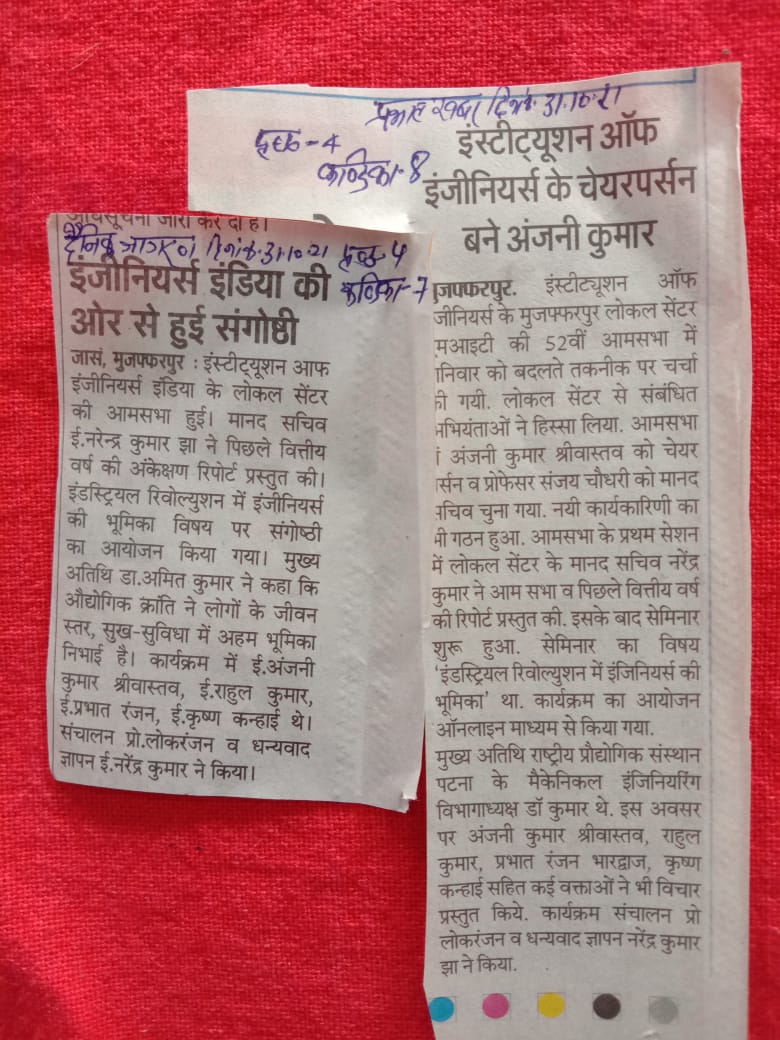 प्रभात खबर दिनांक-31.10.21
पृष्ठ-4
कण्डिका-8
इंस्टीट्यूशन ऑफ
इंजीनियर्स के चेयरपर्सन
बने अंजनी कुमार
जफ्फरपुर. इंस्टीट्यूशन ऑफ
जीनियर्स के मुजफ्फरपुर लोकल सेंटर
मआइटी की 52वीं आमसभा में
निवार को बदलते तकनीक पर चर्चा
की गयी. लोकल सेंटर से संबंधित
भियंताओं ने हिस्सा लिया. आमसभा
में अंजनी कुमार श्रीवास्तव को चेयर
र्सन व प्रोफेसर संजय चौधरी को मानद
चिव चुना गया. नयी कार्यकारिणी का
भी गठन हुआ. आमसभा के प्रथम सेशन
में लोकल सेंटर के मानद सचिव नरेंद्र
कुमार ने आम सभा व पिछले वित्तीय वर्ष
की रिपोर्ट प्रस्तुत की. इसके बाद सेमिनार
शुरू हुआ. सेमिनार का विषय
'इंडस्ट्रियल रिवोल्युशन में इंजिनियर्स की
भूमिका' था. कार्यक्रम का आयोजन
ऑनलाइन माध्यम से किया गया.
मुख्य अतिथि राष्ट्रीय प्रौद्योगिक संस्थान
पटना के मैकेनिकल इंजिनियरिंग
विभागाध्यक्ष डॉ कुमार थे. इस अवसर
पर अंजनी कुमार श्रीवास्तव, राहुल
कुमार, प्रभात रंजन भारद्वाज, कृष्ण
कन्हाई सहित कई वक्ताओं ने भी विचार
प्रस्तुत किये. कार्यक्रम संचालन प्रो
लोकरंजन व धन्यवाद ज्ञापन नरेंद्र कुमार
झा ने किया.
अधिसूचना जारी कर दी है।
दैनिक जागरण दिनांक-31.10.21 पृष्ठ-5
कण्डिका-7
इंजीनियर्स इंडिया की
ओर से हुई संगोष्ठी
जासं, मुजफ्फरपुर : इंस्टीट्यूशन आफ
इंजीनियर्स इंडिया के लोकल सेंटर
की आमसभा हुई। मानद सचिव
ई.नरेन्द्र कुमार झा ने पिछले वित्तीय
वर्ष की अंकेक्षण रिपोर्ट प्रस्तुत की।
इंडस्ट्रियल रिवोल्युशन में इंजीनियर्स
की भूमिका विषय पर संगोष्ठी
का आयोजन किया गया। मुख्य
अतिथि डा.अमित कुमार ने कहा कि
औद्योगिक क्रांति ने लोगों के जीवन
स्तर, सुख-सुविधा में अहम भूमिका
निभाई है। कार्यक्रम में ई.अंजनी
कुमार श्रीवास्तव, ई.राहुल कुमार,
ई.प्रभात रंजन, ई.कृष्ण कन्हाई थे।
संचालन प्रो.लोकरंजन व धन्यवाद
ज्ञापन ई.नरेंद्र कुमार ने किया।